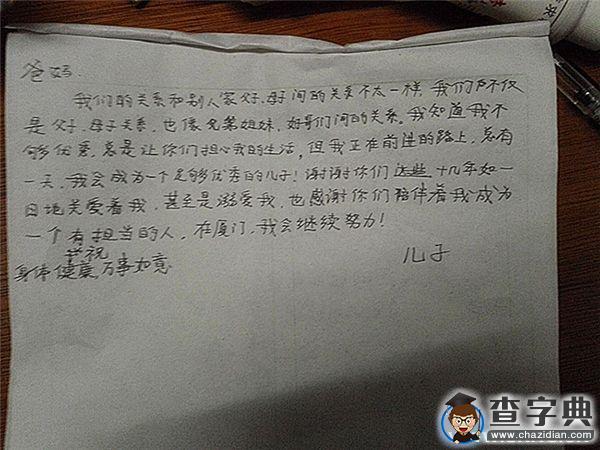 爸妈:
我们的关系和别人家父、母子间的关系不太一样,我们不仅
是父子、母子关系,也像兄弟姐妹、好哥们间的关系。我知道我不
够优秀,总是让你们担心我的生活,但我正在前进的路上,总有
一天,我会成为一个足够优秀的儿子!谢谢你们这些十几年如一
日地关爱着我,甚至是溺爱我,也感谢你们陪伴着我成为
一个有担当的人,在厦门,我会继续努力!
并祝
身体健康,万事如意
儿子
查字典
www.chazidian.com